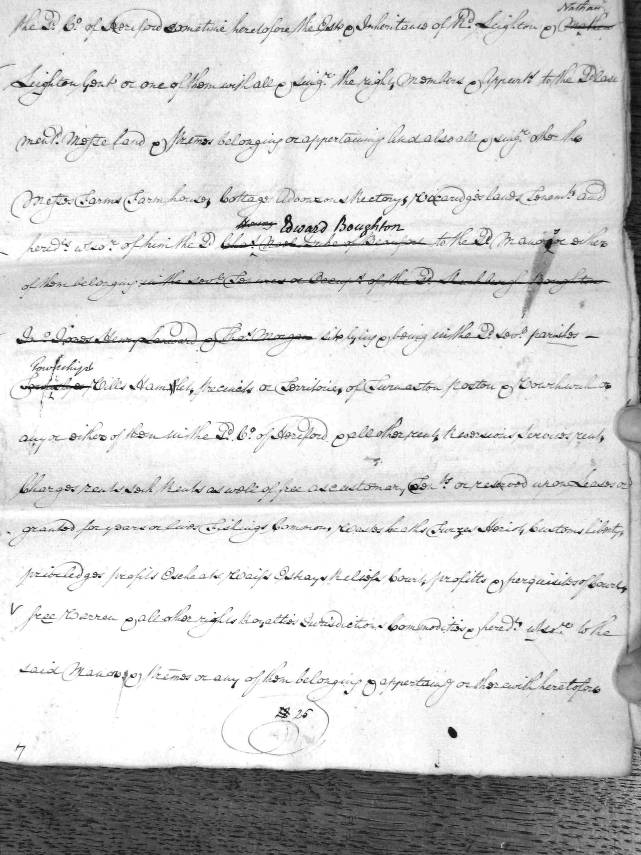 Nathan
the Sd. Co. of Hereford sometime heretofore the Este & Inheritance of Rd. Leighton &
Leighton Gent or one of them with all & sing. the rights Members & Appurts to the
ments. Messe land & Prem̃es belonging or appertaining And also all & sing. other the
Messes Farms Farmhouses Cottages Advowsons Rectorys Vicaridges lands Tenemts. and
Henry Edward Boughton
heredts. wtsor. of him the Sd Duke of Beaufort to the Sd. Manors or either
of them belonging in the sevl. Tenures or Occupt. of the Sd. Boughton
Jones Henry Lanward & Thos. Morgan sit. lying & being in the Sd. sevl. parishes
Townships
Vills Hamlets, precincts or Territories, of Turnaston & Vowchurch or
any or either of them in the Sd. Co. of Hereford & all other rents, Reversions Services rent,
Charges rents seck Rents as well of free as customary Tents. or reserved upon Leases or
granted for years or lives Fishings Common, Furzes Heriots, Customs liberty,
priviledges profits Escheats, Waifs Estrays Reliefs Court, profitts & perquisites of Court,
free Warren & all other rights Royalties Jurisdictions Commodities & heredts. wtsoer. to the
said Manors & Prem̃es or any of them belonging & appertaing or therewith heretofore
25
7